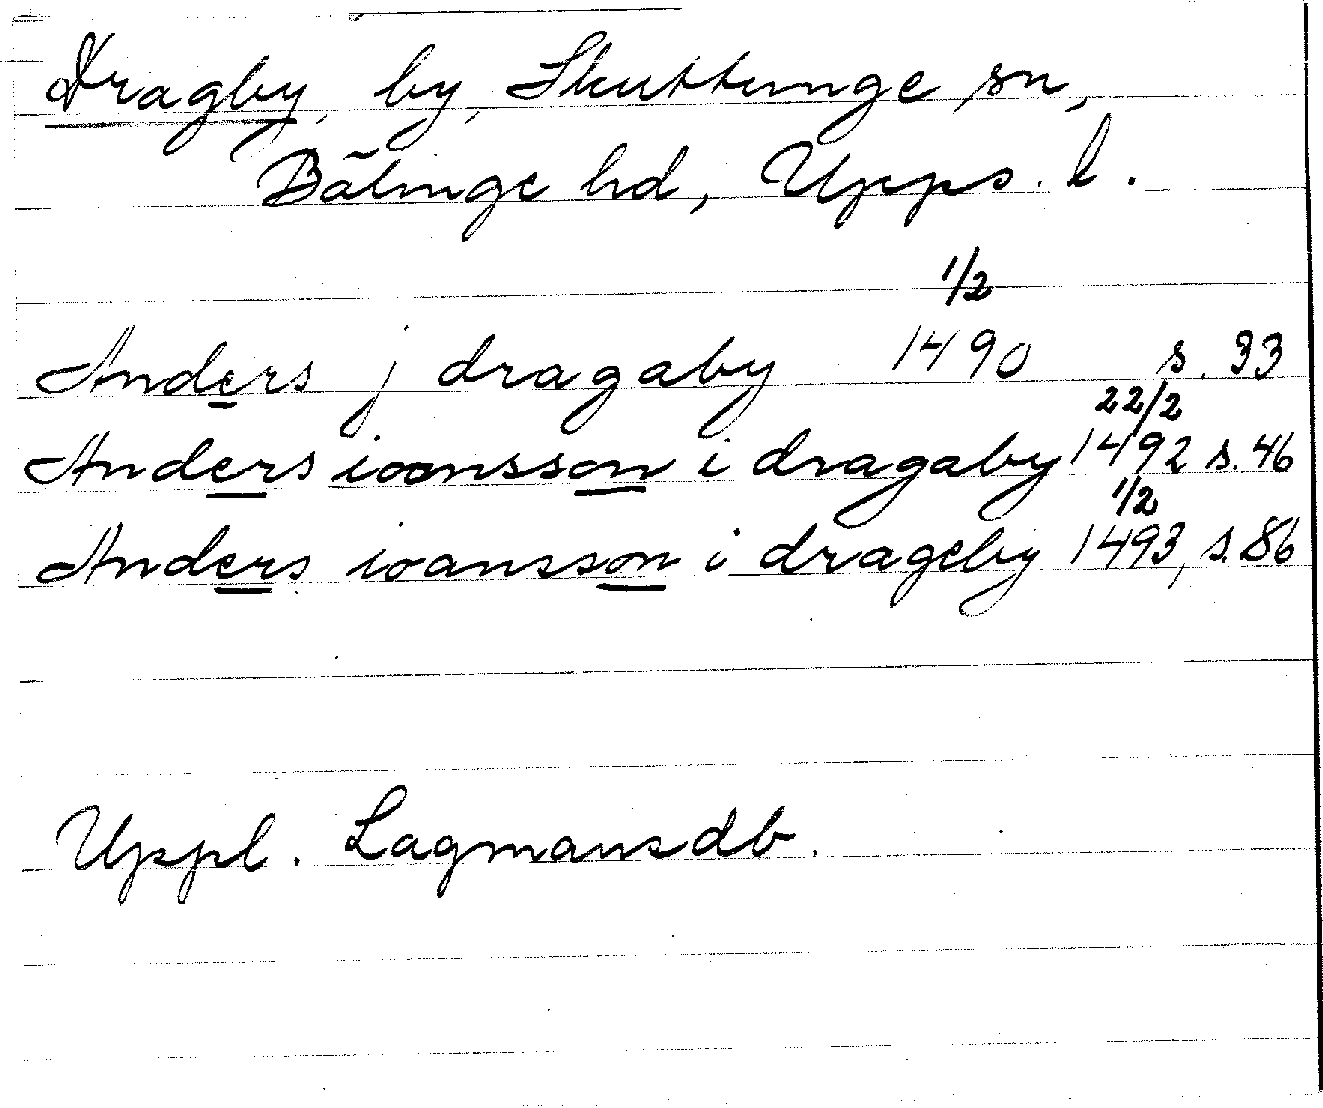 Dragby, by, Skuttunge sn,
Bälinge hd, Upps. l.
1/2
Anders j dragaby 1490 s. 33
22/2
Anders ioonsson i dragaby 1492 s. 46
1/2
Anders ioansson i drageby 1493, s. 86
Uppl. Lagmansdb.